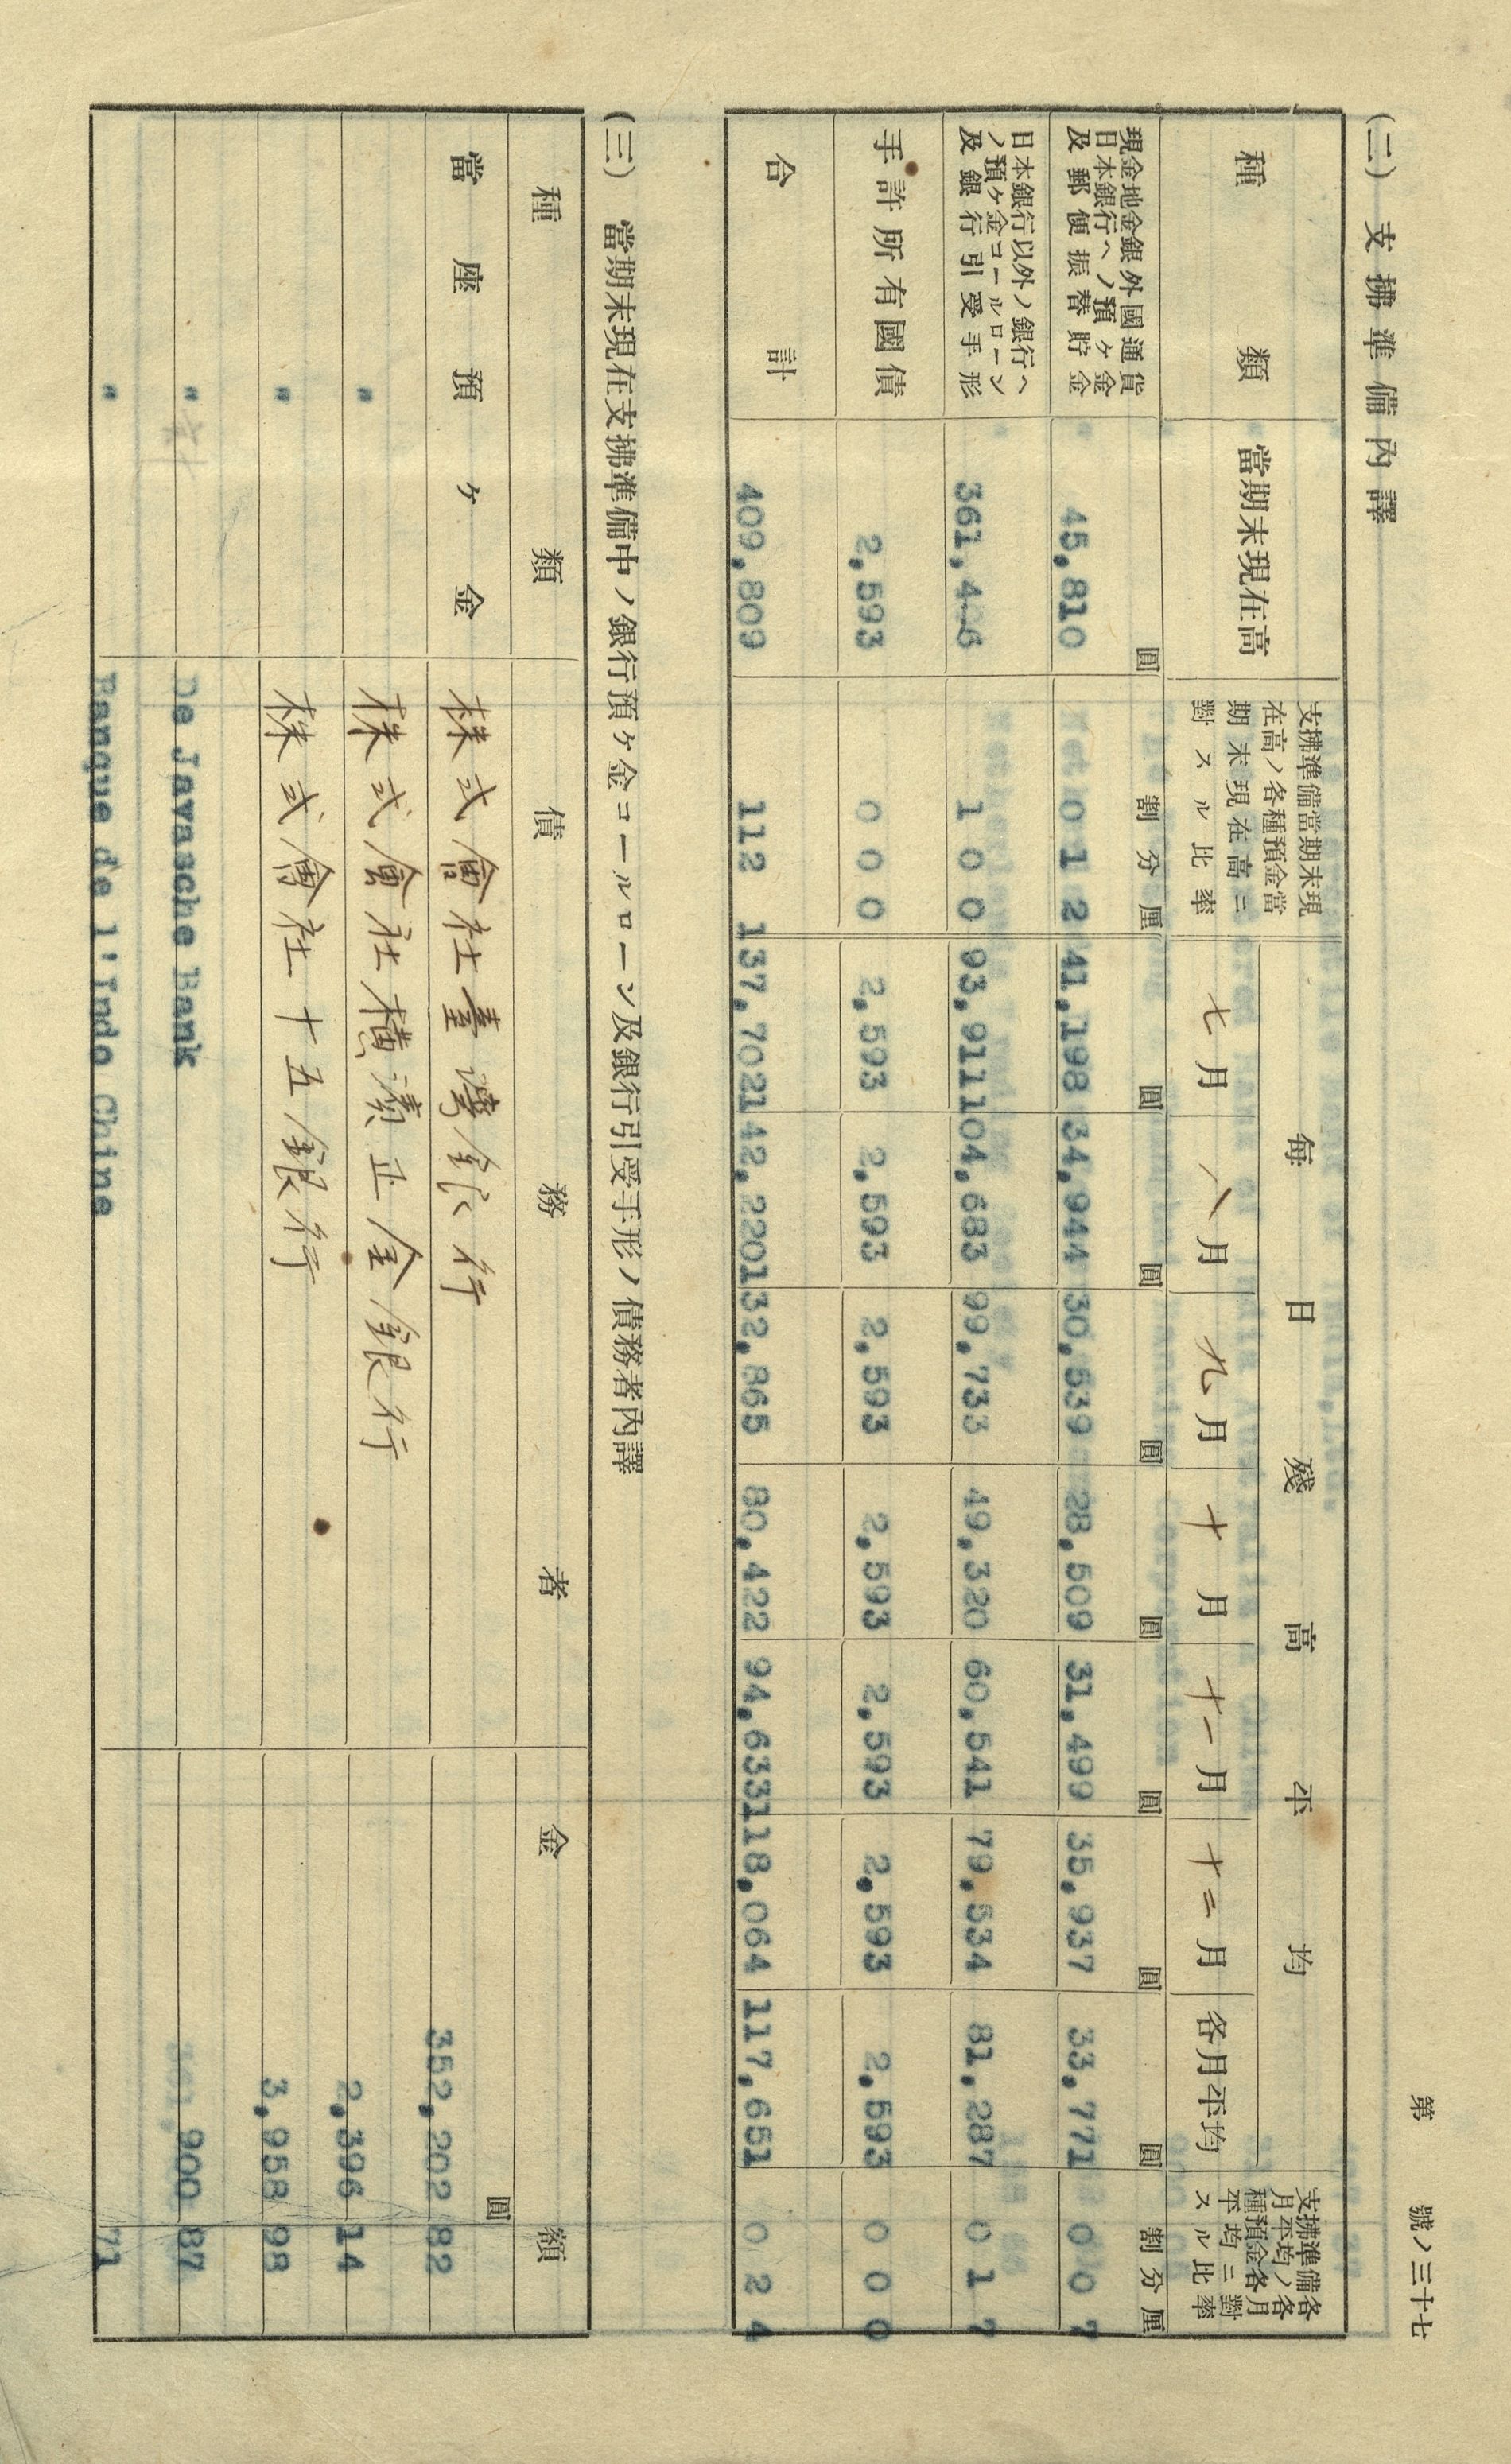 第 號ノ三十七
(二) 支拂準備內譯
種類 當期末現在高 支拂準備當期末現在高ノ各種預金當期末現在高ニ對スル比率 每日殘高平均 支拂準備各月平均ノ各種預金各月平均ニ對スル比率
七月 八月 九月 十月 十一月 十二月 各月平均
圓 割分厘 圓 圓 圓 圓 圓 圓 圓 割分厘
現金地金銀外國通貨日本銀行ヘノ預ケ金及郵便振替貯金 45,810 0 1 2 41,198 34,944 30,539 28,509 31,499 35,937 33,771 0 0 7
日本銀行以外ノ銀行ヘノ預ケ金コールローン及銀行引受手形 361,406 1 0 0 93,911 104,683 99,733 49,320 60,541 79,534 81,287 0 1 7
手許所有國債 2,593 0 0 0 2,593 2,593 2,593 2,593 2,593 2,593 2,593 0 0 0
合計 409,809 112 137,702 142,220 132,865 80,422 94,633 118,064 117,651 0 2 4
(三) 當期末現在支拂準備中ノ銀行預ケ金コールローン及銀行引受手形ノ債務者內譯
種類 債務者 金額
圓
當座預ケ金 株式會社臺灣銀行 352,202 82
〃 株式會社橫濱正金銀行 2,396 14
〃 株式會社十五銀行 3,958 98
〃 De Javasche Bank 900 87
〃 Banque de l'Indo Chine 71